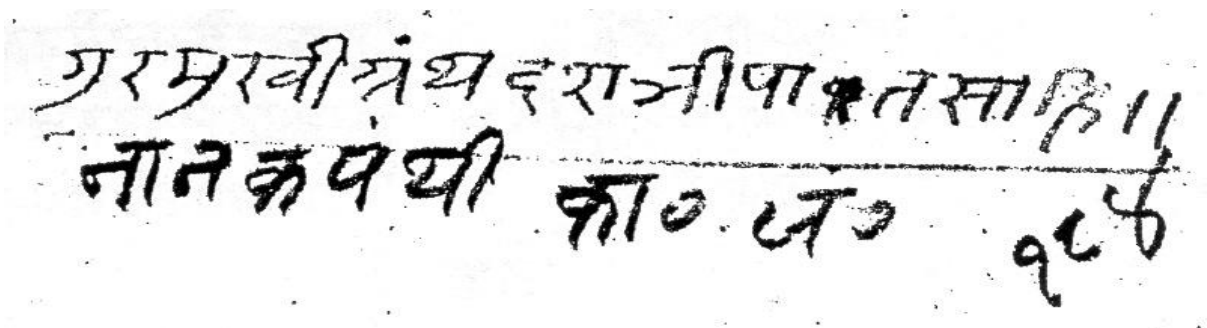 गुरमुखी ग्रंथ दशमी पातसाहि ॥
नानक पंथी का० ख० १८४